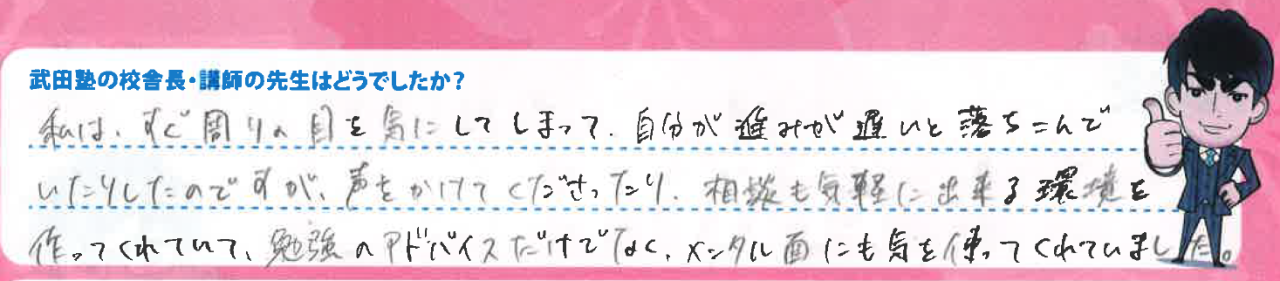 武田塾の校舎長・講師の先生はどうでしたか？
私は、すぐ周りの目を気にしてしまって、自分が進みが遅いと落ちこんで
いたりしたのですが、声をかけてくださったり、相談も気軽に出来る環境を
作ってくれていて、勉強のアドバイスだけでなく、メンタル面にも気を使ってくれていました。